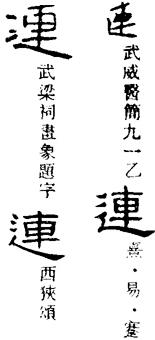 連 武威醫簡九一乙
連 熹·易·蹇
連 武梁祠畫象題字
連 西狹頌